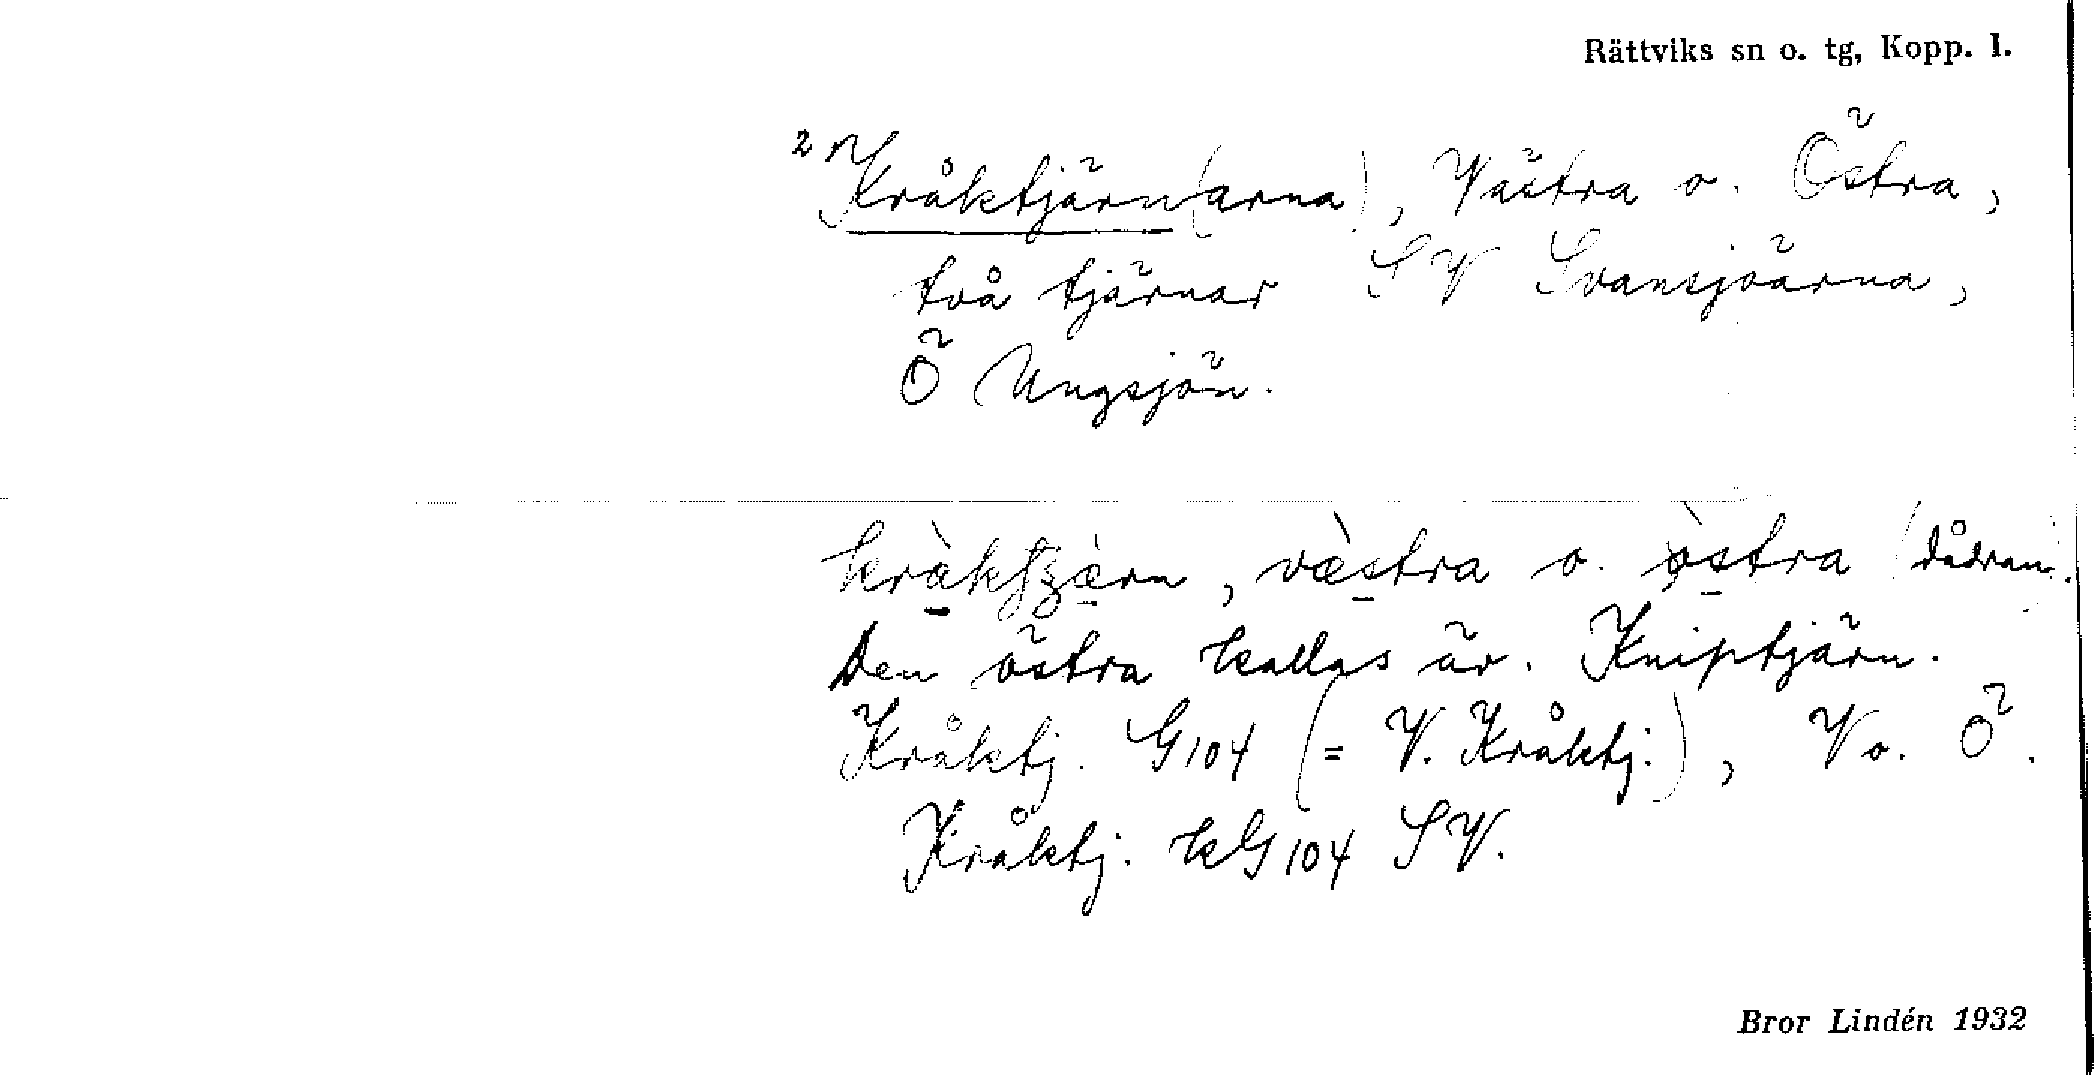 Rättviks sn o. tg, Kopp. l.
2 Kråktjärn(arna), Västra o. Östra,
två tjärnar SV Svansjöarna,
Ö Ungsjön.
, væstra o. östra (dådran).
Den östra kallas äv. Kniptjärn.
Kråktj. G104 (= V. Kråktj.), V o. Ö.
Kråktj. kG104 SV.
Bror Lindén 1932